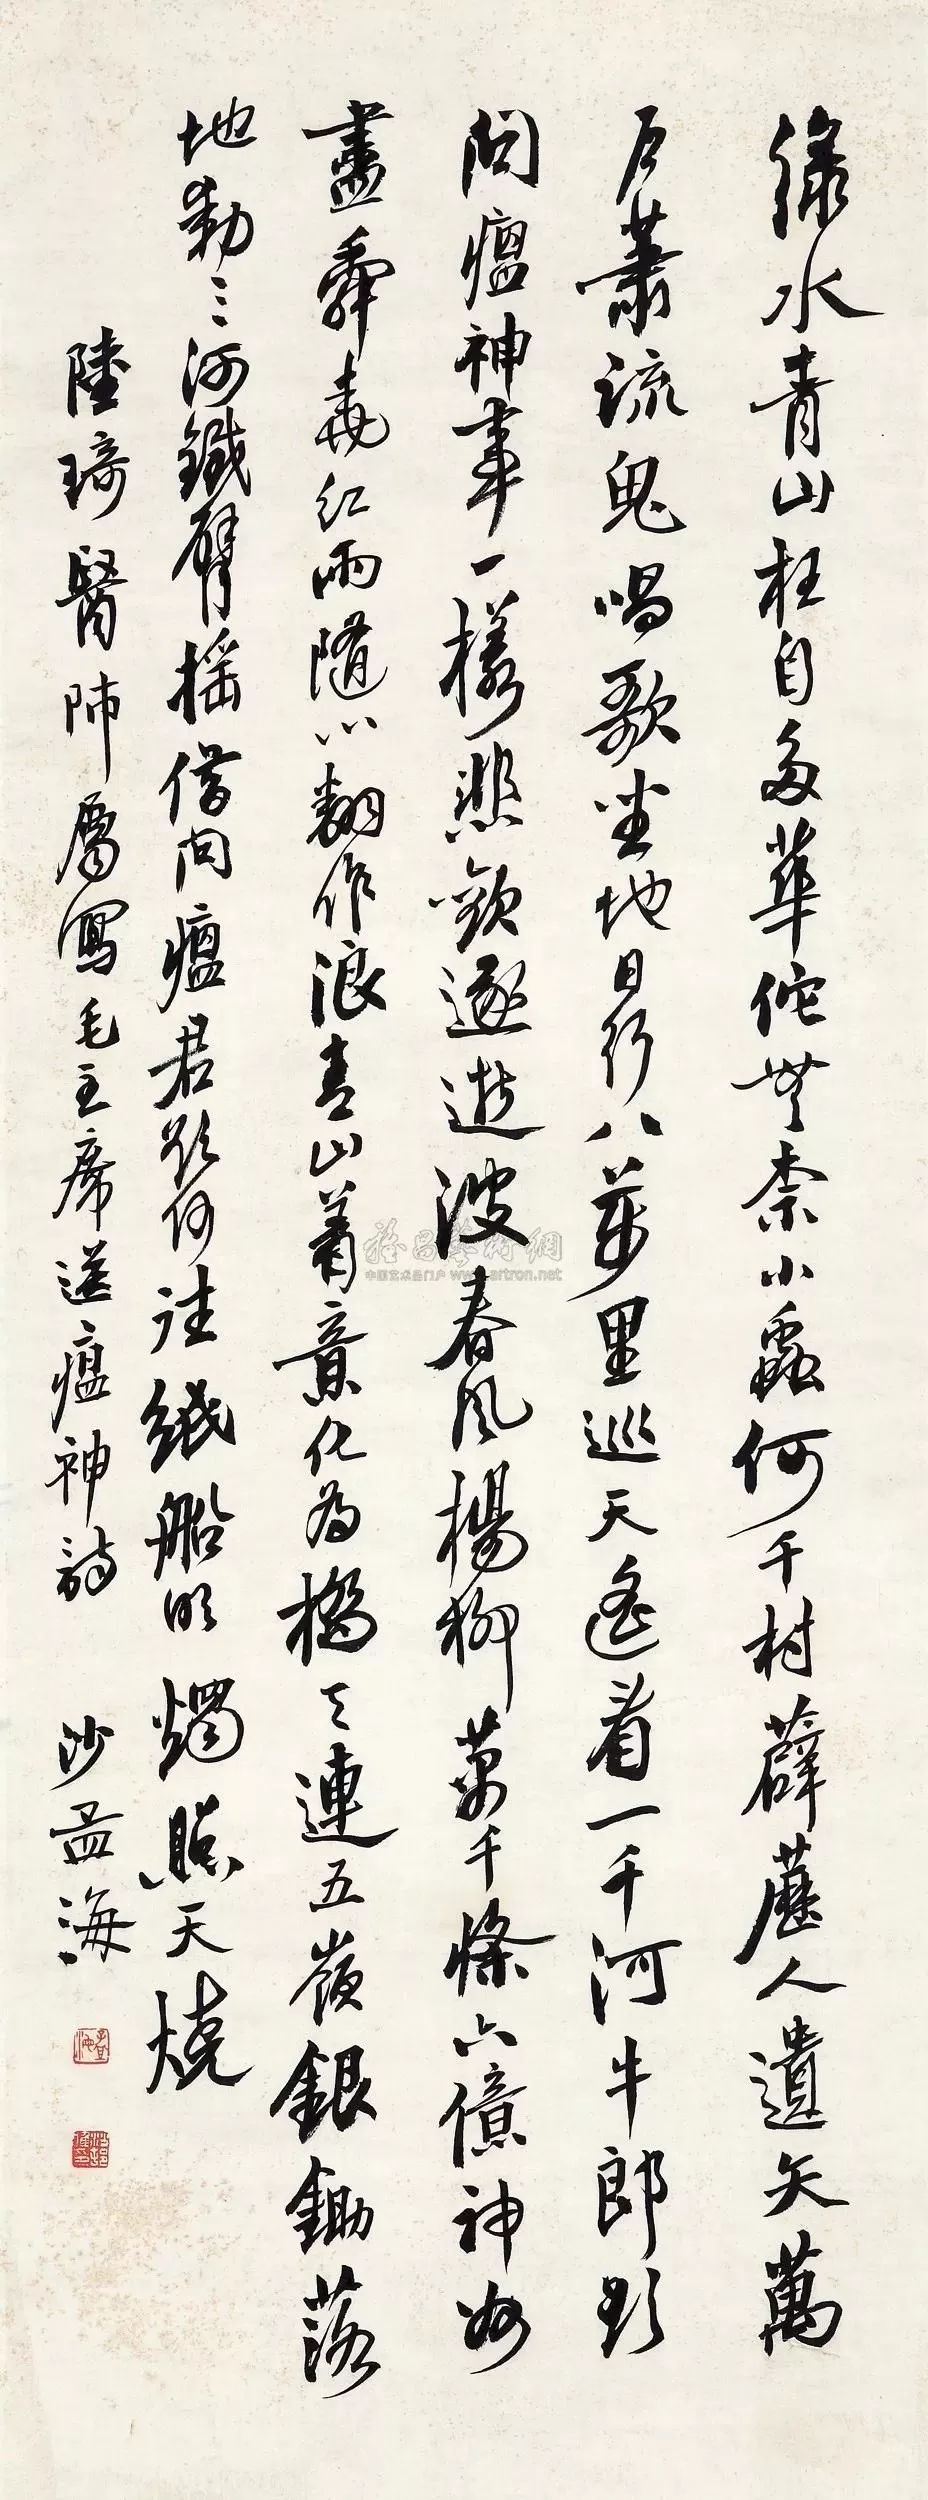 綠水青山枉自多華佗無奈小蟲何千村薜蘿人遺矢萬
戶蕭疏鬼唱歌坐地日行八萬里巡天遙看一千河牛郎欲
問瘟神事一樣悲歡逐逝波春風楊柳萬千條六億神州
盡舜堯紅雨隨心翻作浪青山着意化為橋天連五嶺銀鋤落
地動三河鐵臂搖借問瘟君欲何往紙船明燭照天燒
陸琦醫師屬寫毛主席送瘟神詩 沙孟海
中国艺术品门户 www.artron.net